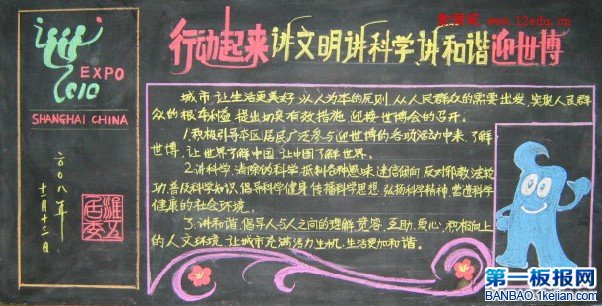 教育城 www.12edu.cn
EXPO
2010
SHANGHAI CHINA
二00八年
十一月十二日
行动起来讲文明讲科学讲和谐迎世博
城市,让生活更美好,以人为本的原则,从人民群众的需要出发,实现人民群
众的根本利益,提出切实有效措施,迎接世博会的召开。
1.积极引导本区居民广泛参与迎世博的各项活动中来,了解
世博,让世界了解中国,让中国了解世界。
2.讲科学,清除伪科学,抵制各种愚昧迷信倾向,反对邪教法轮
功,普及科学知识,倡导科学健身,传播科学思想,弘扬科学精神,营造科学
健康的社会环境。
3.讲和谐,倡导人与人之间的理解,宽容,互助,爱心,积极向上
的人文环境,让城市充满活力生机,生活更加和谐。
第一板报网
BANBAO.1kejian.com